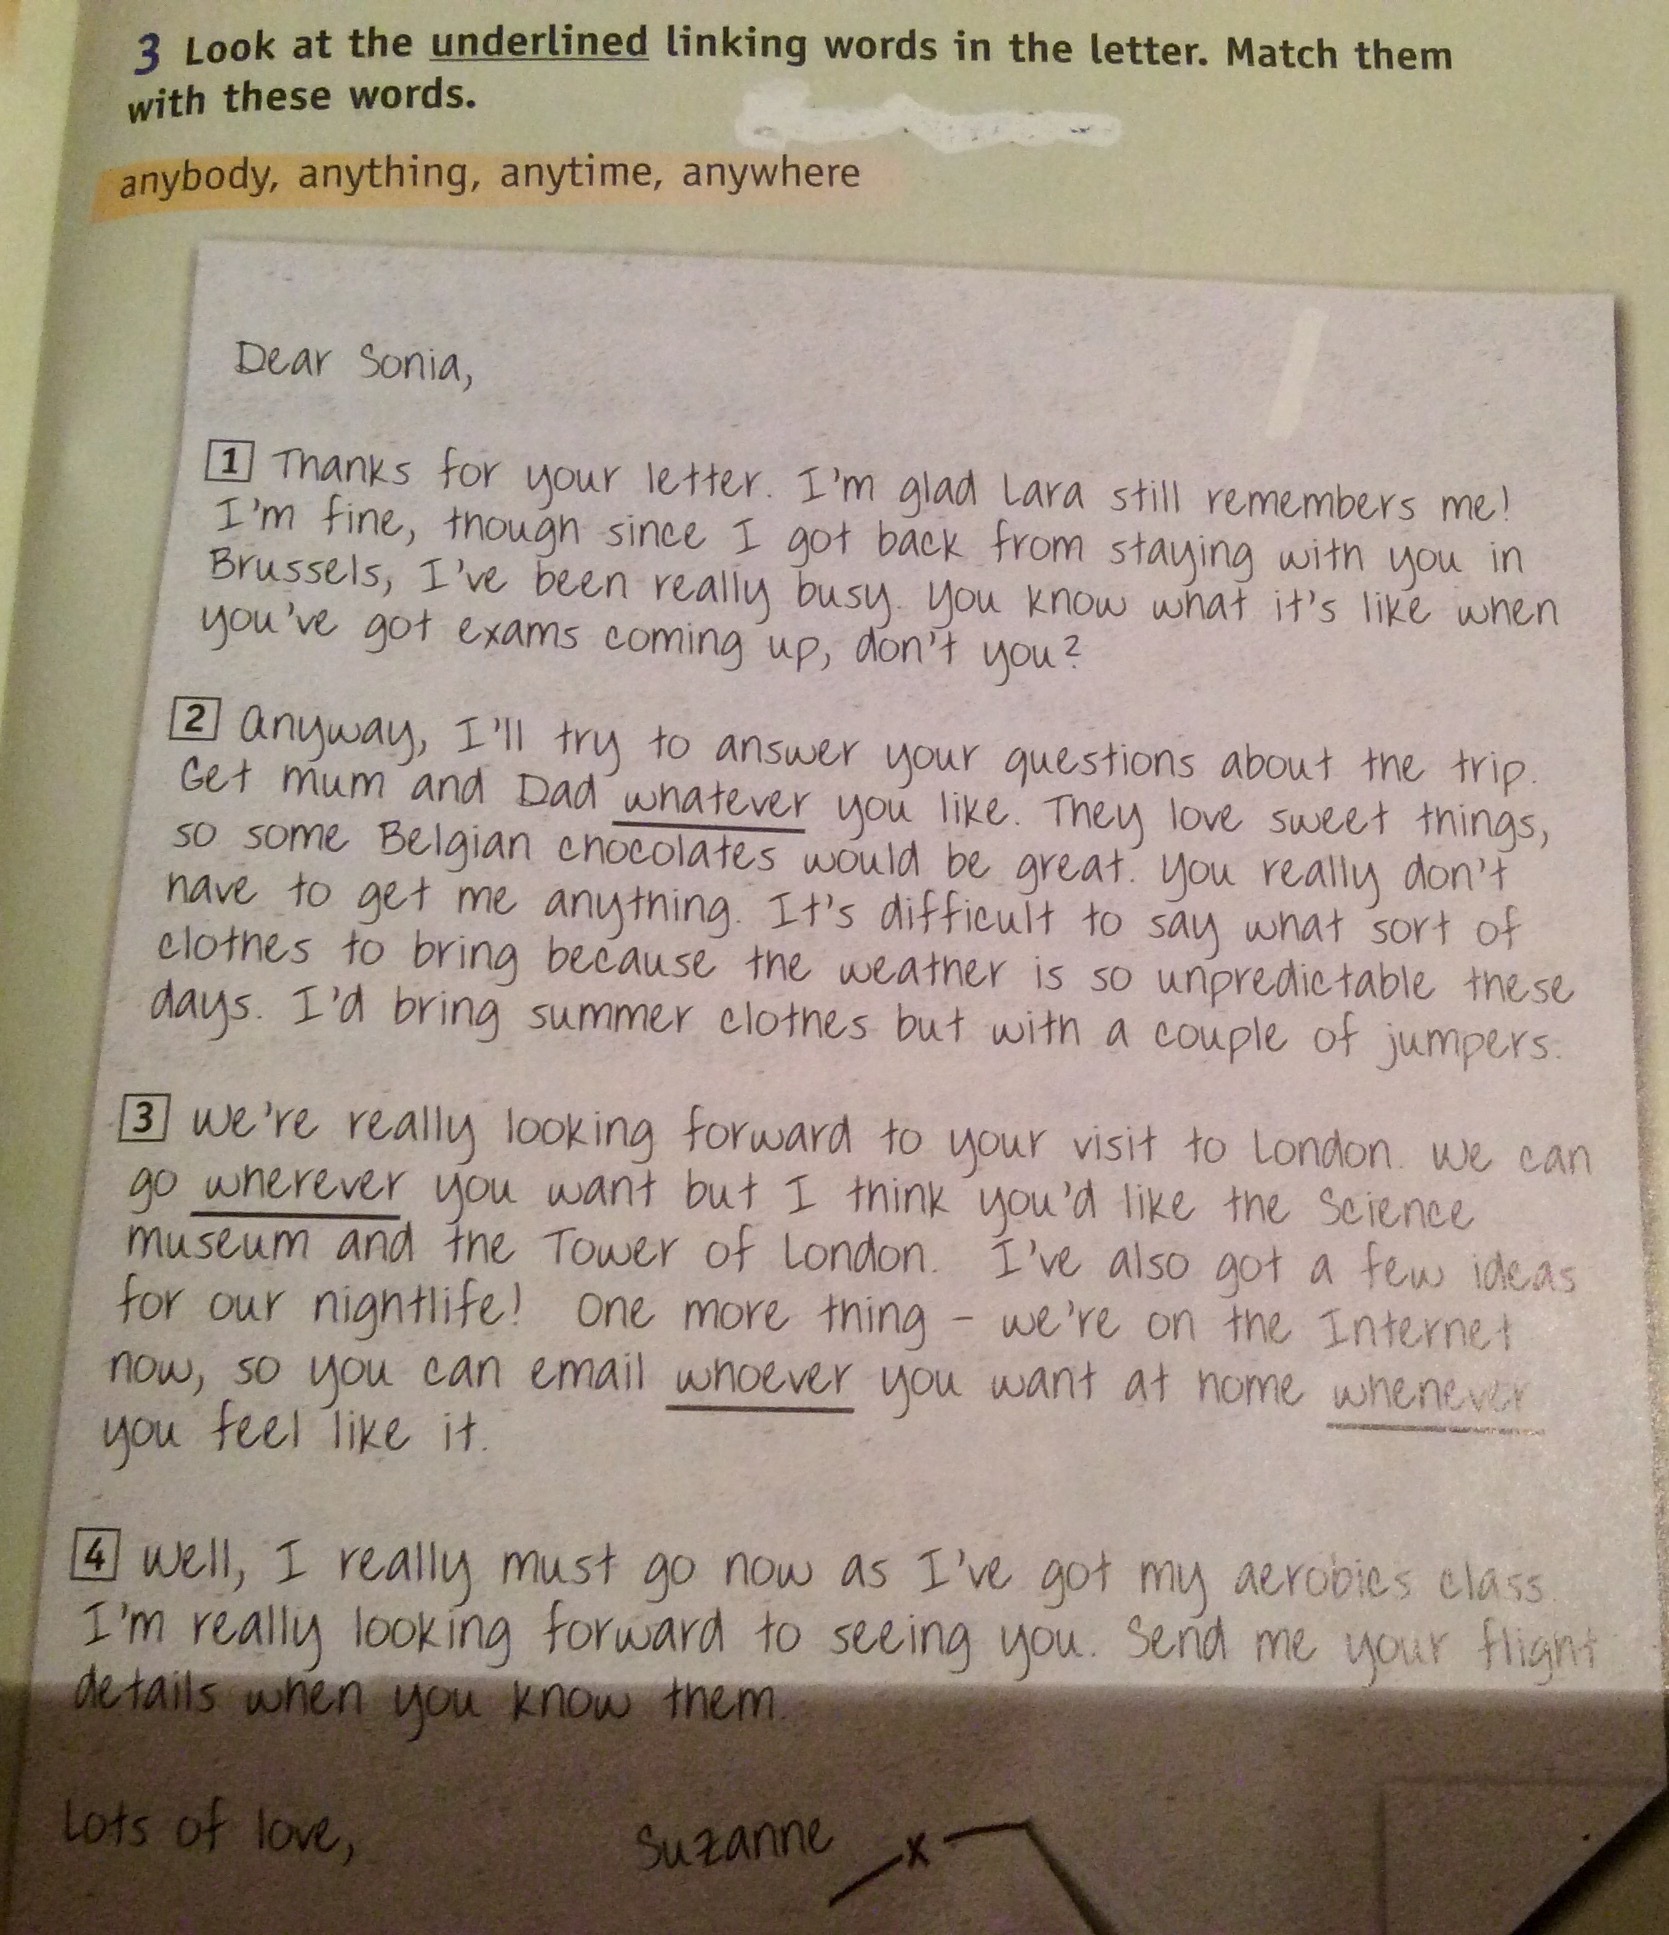 3 Look at the underlined linking words in the letter. Match them
with these words.
anybody, anything, anytime, anywhere
Dear Sonia,
1 Thanks for your letter. I'm glad Lara still remembers me!
I'm fine, though since I got back from staying with you in
Brussels, I've been really busy. You know what it's like when
you've got exams coming up, don't you?
2 Anyway, I'll try to answer your questions about the trip.
Get Mum and Dad whatever you like. They love sweet things,
so some Belgian chocolates would be great. You really don't
have to get me anything. It's difficult to say what sort of
clothes to bring because the weather is so unpredictable these
days. I'd bring summer clothes but with a couple of jumpers.
3 We're really looking forward to your visit to London. We can
go wherever you want but I think you'd like the Science
Museum and the Tower of London. I've also got a few ideas
for our nightlife! One more thing – we're on the Internet
now, so you can email whoever you want at home whenever
you feel like it.
4 Well, I really must go now as I've got my aerobics class.
I'm really looking forward to seeing you. Send me your flight
details when you know them.
Lots of love,
Suzanne x